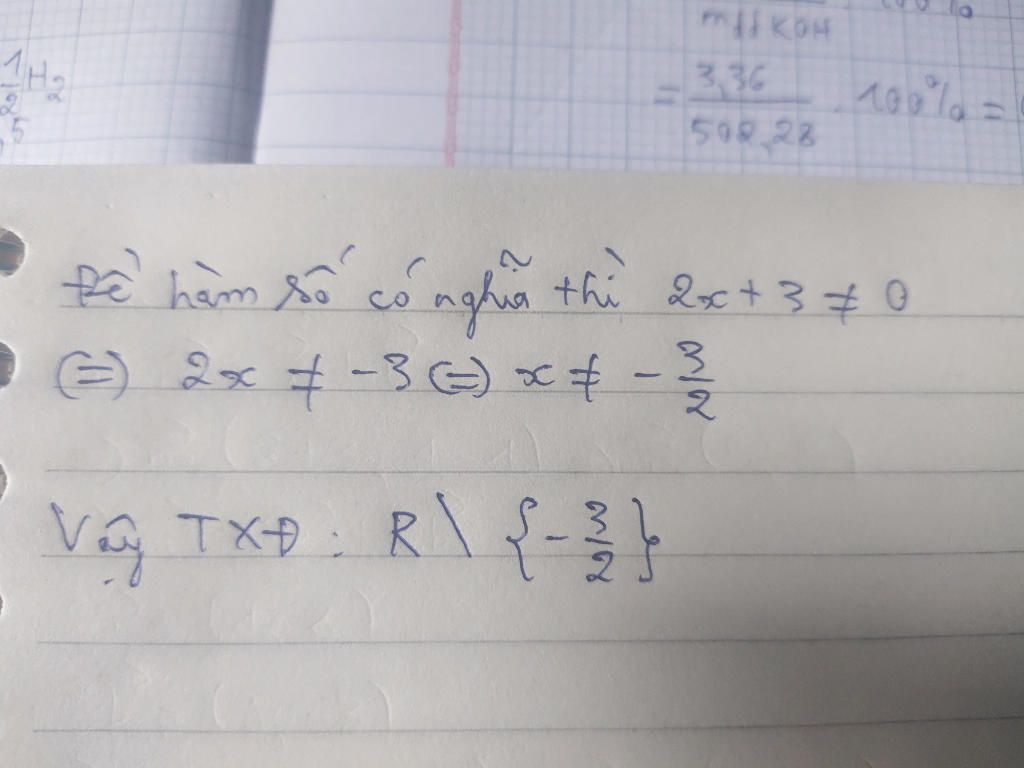 mddKOH
= 3,36/502,28 . 100% =
1/2 H2
Để hàm số có nghĩa thì 2x + 3 ≠ 0
(=) 2x ≠ -3 (=) x ≠ - 3/2
Vậy TXĐ : R \ { - 3/2 }